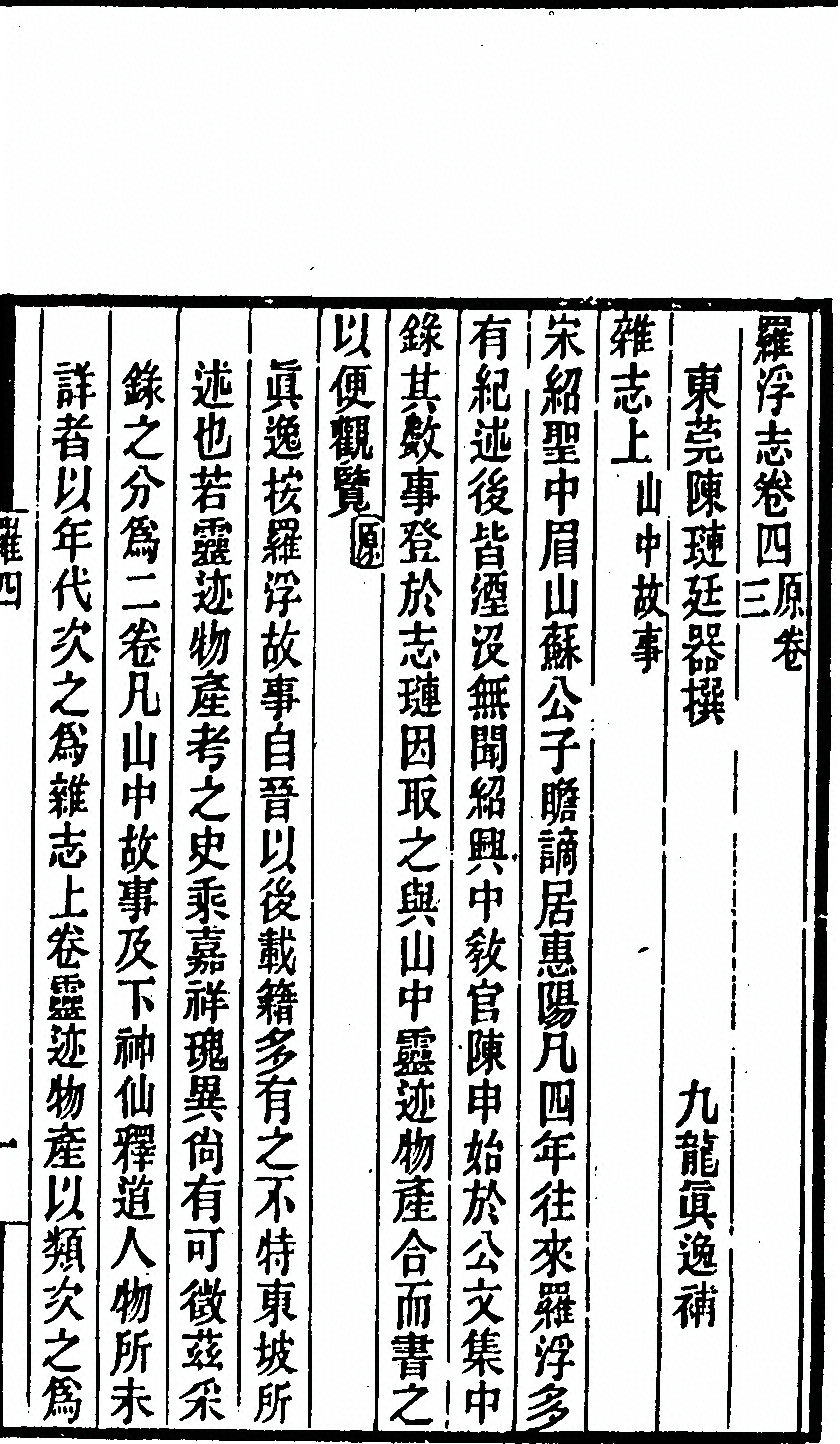 羅浮志卷四原卷三
東莞陳璉廷器撰 九龍眞逸補
雜志上山中故事
宋紹聖中眉山蘇公子瞻謫居惠陽凡四年往來羅浮多
有紀述後皆湮沒無聞紹興中敎官陳申始於公文集中
錄其數事登於志璉因取之與山中靈迹物產合而書之
以便觀覽原
眞逸按羅浮故事自晉以後載籍多有之不特東坡所
述也若靈迹物產考之史乘嘉祥瑰異尙有可徵茲采
錄之分爲二卷凡山中故事及下神仙釋道人物所未
詳者以年代次之爲雜志上卷靈迹物產以類次之爲
羅四
一